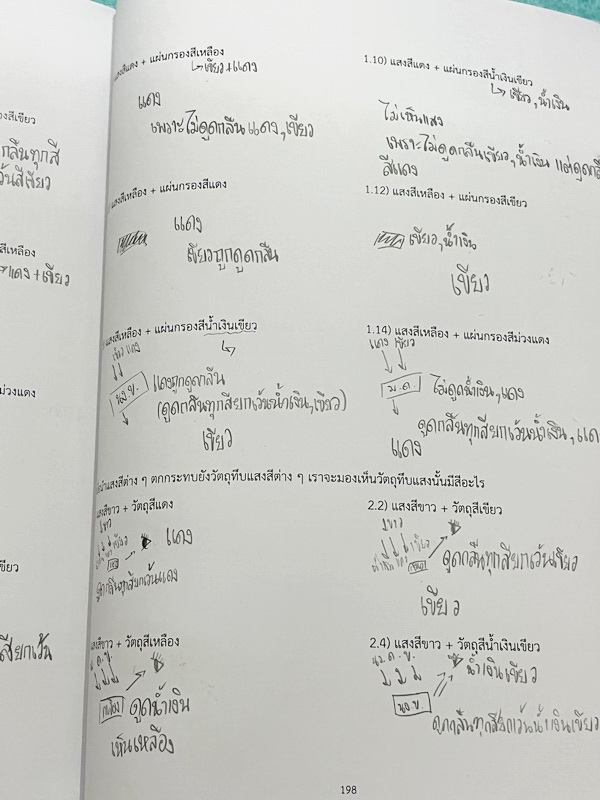 แสงสีแดง + แผ่นกรองสีเหลือง
เขียว+แดง
แดง
เพราะไม่ดูดกลืน แดง,เขียว
1.10) แสงสีแดง + แผ่นกรองสีน้ำเงินเขียว
เขียว, น้ำเงิน
ไม่เห็นแสง
เพราะไม่ดูดกลืนเขียว, น้ำเงิน แต่ดูดกลื
สีแดง
แสงสีเหลือง + แผ่นกรองสีแดง
แดง
เขียวถูกดูดกลืน
1.12) แสงสีเหลือง + แผ่นกรองสีเขียว
เขียว, น้ำเงิน
เขียว
แสงสีเหลือง + แผ่นกรองสีน้ำเงินเขียว
เขียว แดง
แดงถูกดูดกลืน
(ดูดกลืนทุกสียกเว้นน้ำเงิน,เขียว)
เขียว
1.14) แสงสีเหลือง + แผ่นกรองสีม่วงแดง
แดง เขียว
ม.ด.
ไม่ดูดน้ำเงิน, แดง
ดูดกลืนทุกสียกเว้นน้ำเงิน, แด
แดง
นำแสงสีต่าง ๆ ตกกระทบยังวัตถุทึบแสงสีต่าง ๆ เราจะมองเห็นวัตถุทึบแสงนั้นมีสีอะไร
แสงสีขาว + วัตถุสีแดง
ขาว
แดง
ดูดกลืนทุกสียกเว้นแดง
2.2) แสงสีขาว + วัตถุสีเขียว
ขาว
ดูดกลืนทุกสียกเว้นเขียว
เขียว
แสงสีขาว + วัตถุสีเหลือง
น. ด. ข.
เหลือง
ดูดน้ำเงิน
เห็นเหลือง
2.4) แสงสีขาว + วัตถุสีน้ำเงินเขียว
นง. ด. ข.
น้ำเงินเขียว
นง.ข.
ดูดกลืนทุกสียกเว้นน้ำเงินเขียว
198